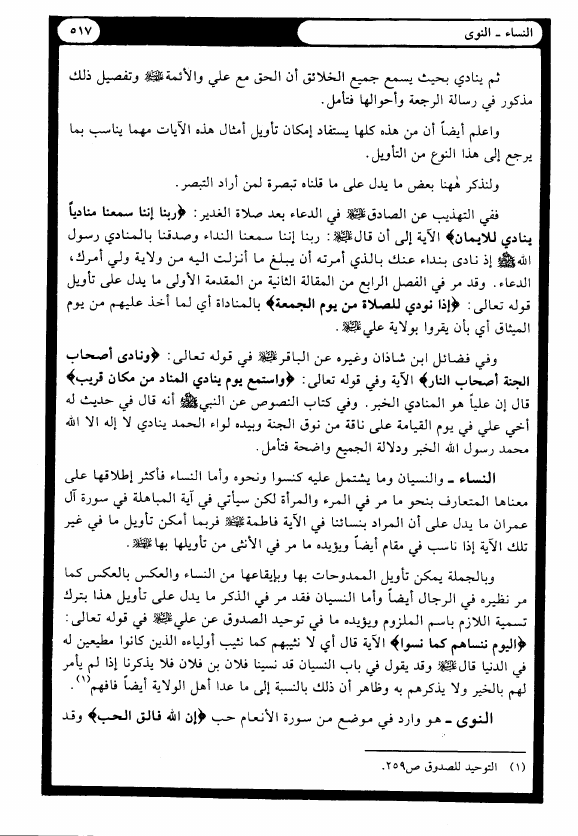 النساء - النوى
٥١٧
ثم ينادي بحيث يسمع جميع الخلائق أن الحق مع علي والأئمة ﷺ وتفصيل ذلك
مذكور في رسالة الرجعة وأحوالها فتأمل.
واعلم أيضاً أن من هذه كلها يستفاد إمكان تأويل أمثال هذه الآيات مهما يناسب بما
يرجع إلى هذا النوع من التأويل.
ولنذكر ههنا بعض ما يدل على ما قلناه تبصرة لمن أراد التبصر.
ففي التهذيب عن الصادق ﷺ في الدعاء بعد صلاة الغدير: ﴿ربنا إننا سمعنا منادياً
ينادي للايمان﴾ الآية إلى أن قال ﷺ: ربنا إننا سمعنا النداء وصدقنا بالمنادي رسول
الله ﷺ إذ نادى بنداء عنك بالذي أمرته أن يبلغ ما أنزلت اليه من ولاية ولي أمرك،
الدعاء. وقد مر في الفصل الرابع من المقالة الثانية من المقدمة الأولى ما يدل على تأويل
قوله تعالى: ﴿إذا نودي للصلاة من يوم الجمعة﴾ بالمناداة أي لما أخذ عليهم من يوم
الميثاق أي بأن يقروا بولاية علي ﷺ.
وفي فضائل ابن شاذان وغيره عن الباقر ﷺ في قوله تعالى: ﴿ونادى أصحاب
الجنة أصحاب النار﴾ الآية وفي قوله تعالى: ﴿واستمع يوم ينادي المناد من مكان قريب﴾
قال إن علياً هو المنادي الخبر. وفي كتاب النصوص عن النبي ﷺ أنه قال في حديث له
أخي علي في يوم القيامة على ناقة من نوق الجنة وبيده لواء الحمد ينادي لا إله الا الله
محمد رسول الله الخبر ودلالة الجميع واضحة فتأمل.
النساء - والنسيان وما يشتمل عليه كنسوا ونحوه وأما النساء فأكثر إطلاقها على
معناها المتعارف بنحو ما مر في المرء والمرأة لكن سيأتي في آية المباهلة في سورة آل
عمران ما يدل على أن المراد بنسائنا في الآية فاطمة ﷺ فربما أمكن تأويل ما في غير
تلك الآية إذا ناسب في مقام أيضاً ويؤيده ما مر في الأنثى من تأويلها بها ﷺ.
وبالجملة يمكن تأويل الممدوحات بها وبإيقاعها من النساء والعكس بالعكس كما
مر نظيره في الرجال أيضاً وأما النسيان فقد مر في الذكر ما يدل على تأويل هذا بترك
تسمية اللازم باسم الملزوم ويؤيده ما في توحيد الصدوق عن علي ﷺ في قوله تعالى:
﴿اليوم ننساهم كما نسوا﴾ الآية قال أي لا نثيبهم كما نثيب أولياءه الذين كانوا مطيعين له
في الدنيا قال ﷺ وقد يقول في باب النسيان قد نسينا فلان بن فلان فلا يذكرنا إذا لم يأمر
لهم بالخير ولا يذكرهم به وظاهر أن ذلك بالنسبة إلى ما عدا أهل الولاية أيضاً فافهم(١).
النوى - هو وارد في موضع من سورة الأنعام حب ﴿إن الله فالق الحب﴾ وقد
(١) التوحيد للصدوق ص٢٥٩.